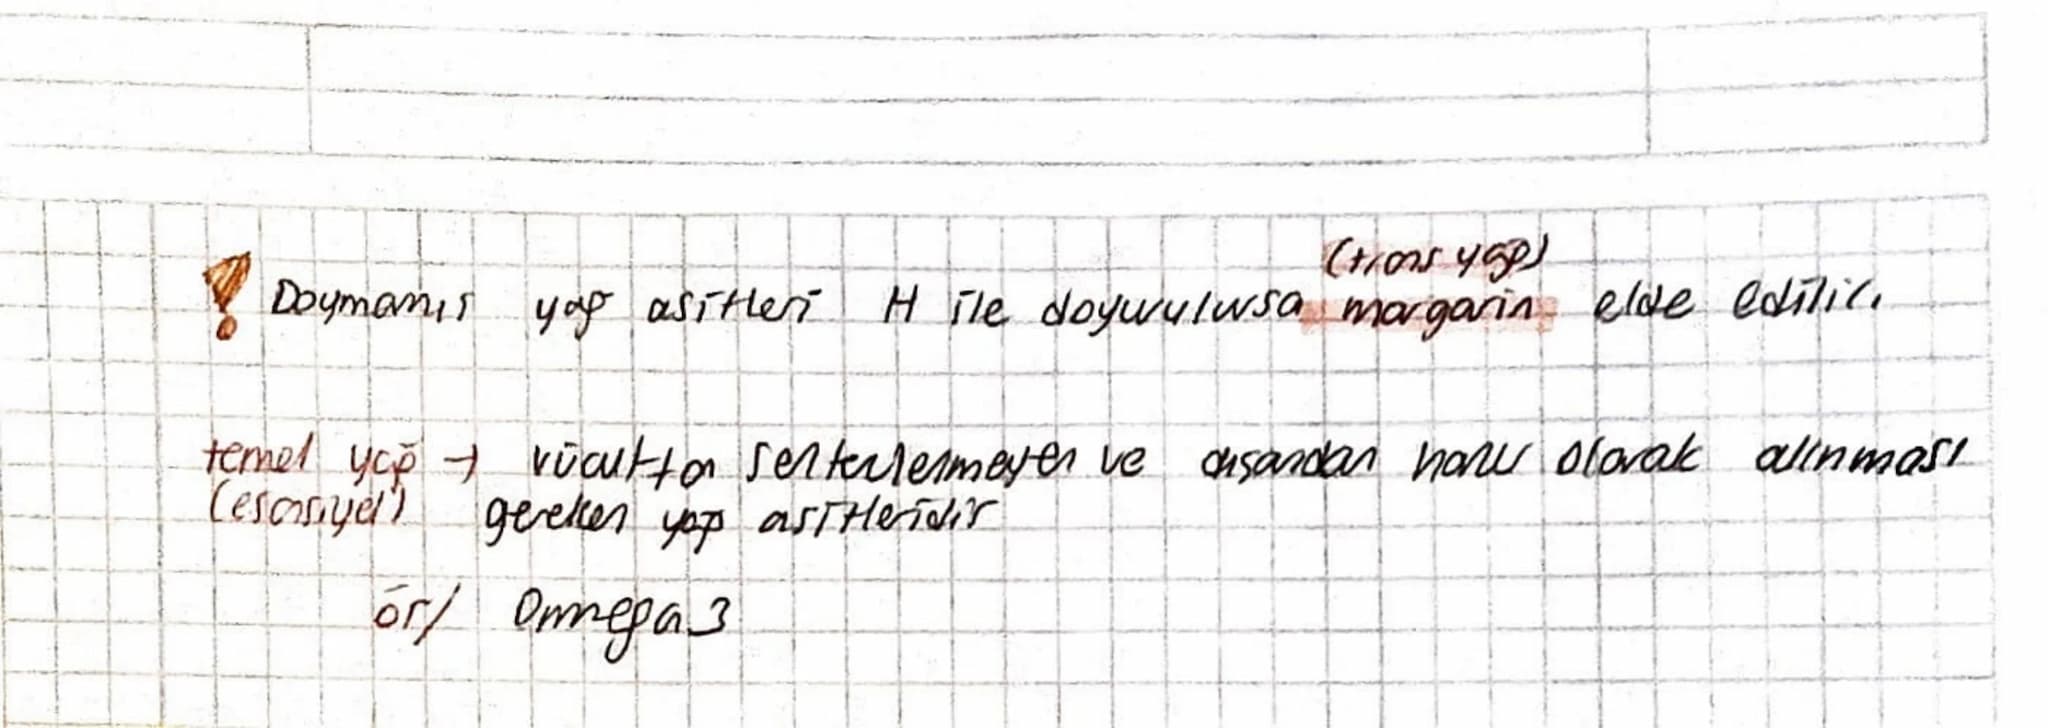 (trans yağ)
! Doymamış yağ asitleri H ile doyurulursa margarin elde edilir.
temel yağ → vücutta sentezlenmeyen ve dışarıdan hazır olarak alınması
(esansiyel) gereken yağ asitleridir
ör/ Omega 3